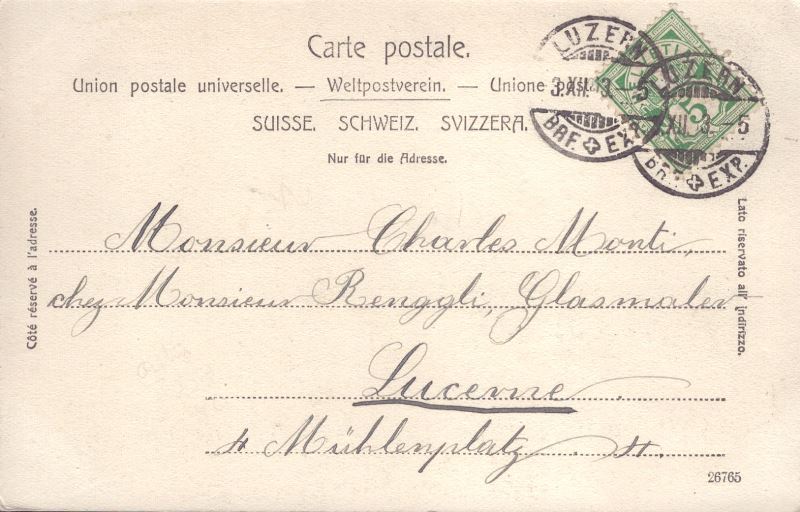 Carte postale.
Union postale universelle. — Weltpostverein. — Unione
SUISSE. SCHWEIZ. SVIZZERA.
Nur für die Adresse.
LUZERN
BRF. EXP.
LUZERN
XII
5
BRF. EXP.
5
Côté réservé à l'adresse.
Lato riservato all' indirizzo.
Monsieur Charles Monti,
chez Monsieur Renggli, Glasmaler
Lucerne
4 Mühlenplatz 4.
26765